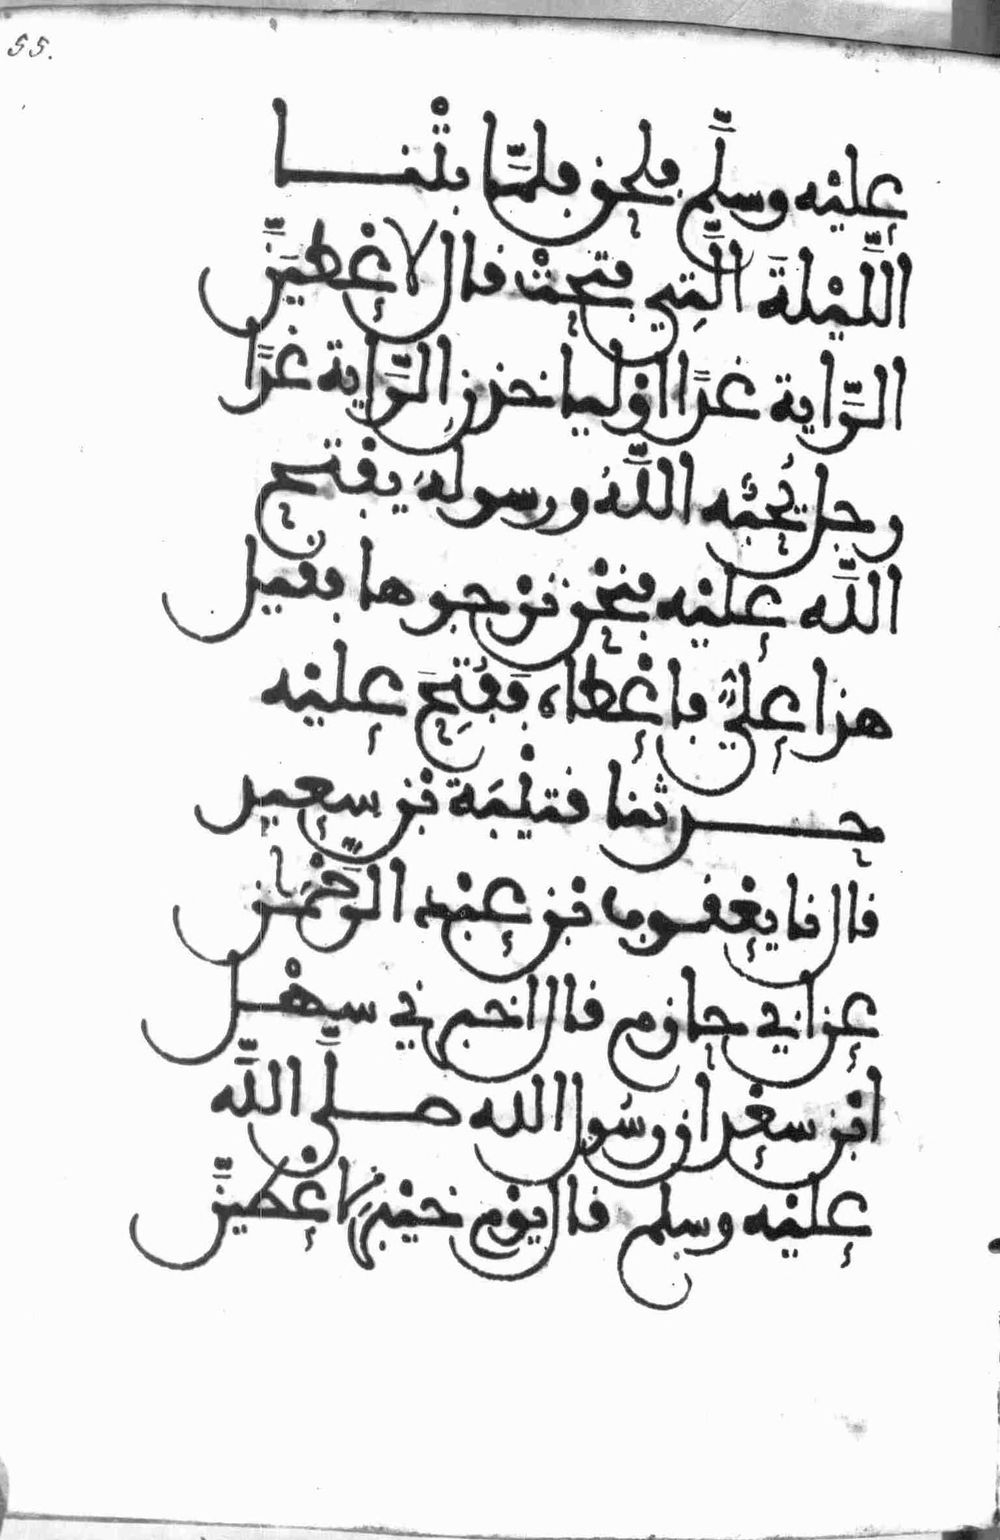 55.
عليه وسلم فلحق فلما بتنا
الليلة التي فتحت قال لأعطين
الراية غدا أو ليأخذن الراية غدا
رجل يحبه الله ورسوله يفتح
الله عليه فنحن نرجوها فقيل
هذا علي فأعطاه ففتح عليه
حدثنا قتيبة بن سعيد
قال نا يعقوب بن عبد الرحمن
عن أبي حازم قال أخبرني سهل
ابن سعد أن رسول الله صلى الله
عليه وسلم قال يوم خيبر لأعطين